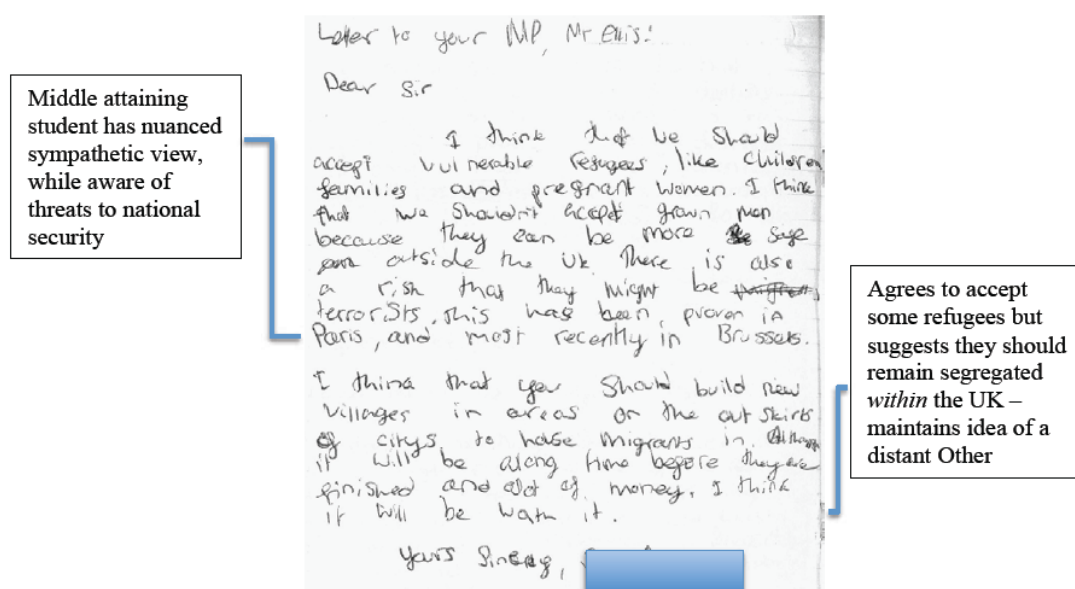 Middle attaining
student has nuanced
sympathetic view,
while aware of
threats to national
security
Letter to your MP, Mr Ellis:
Dear Sir
I think that we should
accept vulnerable refugees, like children
families and pregnant women. I think
that we shouldn't accept grown men
because they can be more safe
outside the UK. There is also
a risk that they might be
terrorists, this has been, proven in
Paris, and most recently in Brussels.
I think that you should build new
villages in areas on the out skirts
of citys to house migrants in. Although
it will be along time before they are
finished and alot of money. I think
it will be it.
Yours
Agrees to accept
some refugees but
suggests they should
remain segregated
within the UK –
maintains idea of a
distant Other